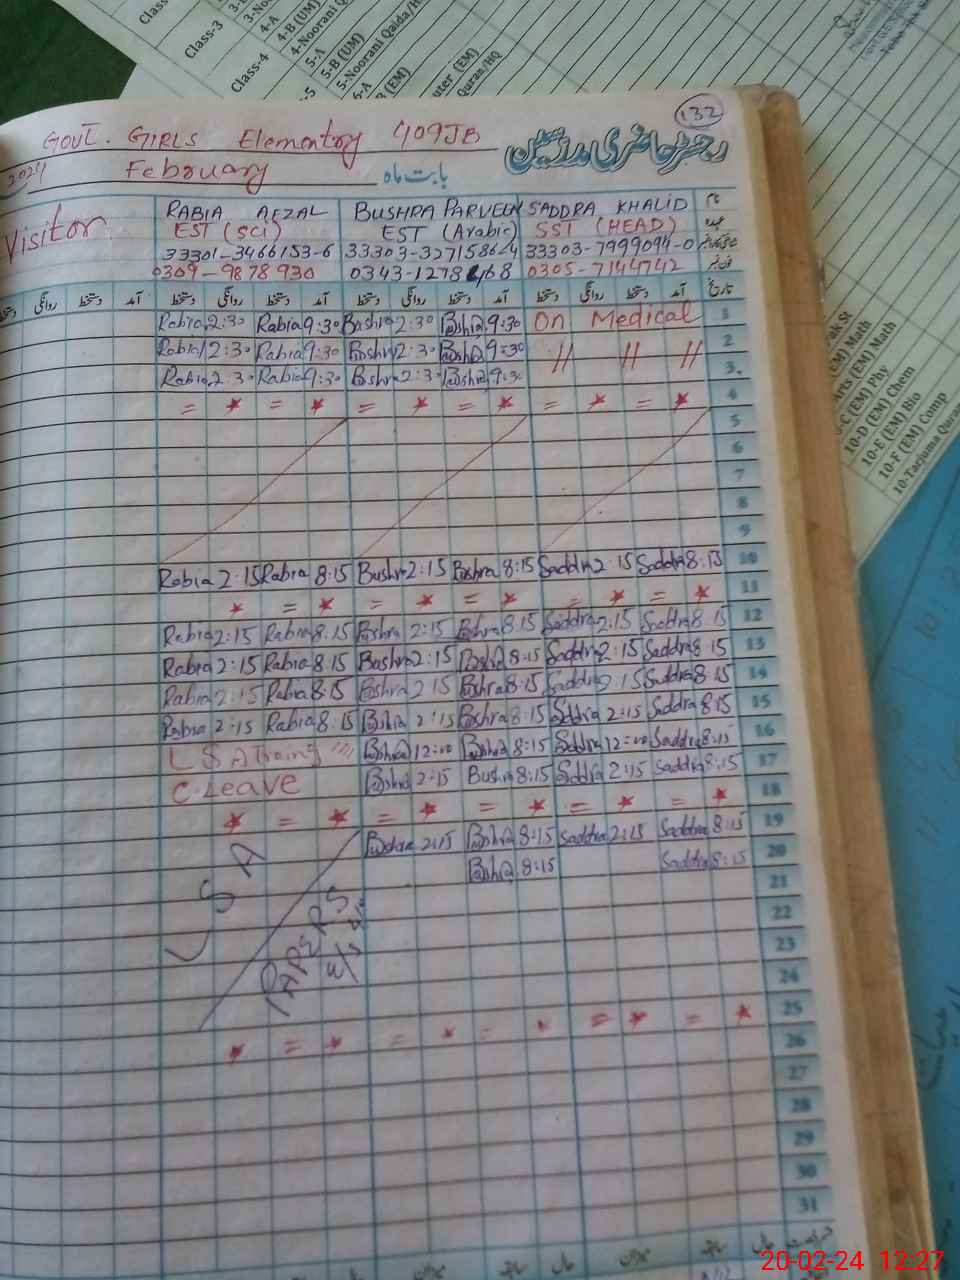 Class-3
4-A
4-B (UM)
4-Noorani Q
Class-4
5-A
5-B (UM)
5-Noorani Qaida/H
6-A
(EM)
uter (EM)
Quran/HQ
132
GOVT. GIRLS Elementry 409JB
رجسٹر حاضری مدرسین
2024
February
بابت ماہ
Visitor
RABIA AFZAL
BUSHRA PARVEEN
SADDRA KHALID
نام
EST (SCI)
EST (Arabic)
SST (HEAD)
عہدہ
33301-3466153-6
33303-3271586-4
33303-7999094-0
0309-9878930
0343-1278468
0305-7144742
دستخط روانگی دستخط آمد دستخط روانگی دستخط آمد دستخط روانگی دستخط آمد دستخط روانگی دستخط آمد تاریخ
Rabia 2:30 Rabia 9:30 Bushra 2:30 Bushra 9:30 On Medical 1
Rabia 2:30 Rabia 9:30 Bushra 2:30 Bushra 9:30 // // // 2
Rabia 2:30 Rabia 9:30 Bushra 2:30 Bushra 9:30 3
= * = * = * = * = * = * 4
5
6
7
8
9
Rabia 2:15 Rabia 8:15 Bushra 2:15 Bushra 8:15 Saddra 2:15 Saddra 8:15 10
* = * = * = * = * = * 11
Rabia 2:15 Rabia 8:15 Bushra 2:15 Bushra 8:15 Saddra 2:15 Saddra 8:15 12
Rabia 2:15 Rabia 8:15 Bushra 2:15 Bushra 8:15 Saddra 2:15 Saddra 8:15 13
Rabia 2:15 Rabia 8:15 Bushra 2:15 Bushra 8:15 Saddra 2:15 Saddra 8:15 14
Rabia 2:15 Rabia 8:15 Bushra 2:15 Bushra 8:15 Saddra 2:15 Saddra 8:15 15
LSA Bushra 12:00 Bushra 8:15 Saddra 12:00 Saddra 8:15 16
C.Leave Bushra 2:15 Bushra 8:15 Saddra 2:15 Saddra 8:15 17
* = * = * = * = * = * 18
Bushra 2:15 Bushra 8:15 Saddra 2:15 Saddra 8:15 19
Bushra 8:15 Saddra 8:15 20
LSA
PAPERS
21
22
23
24
* = * = * = * = * = * 25
26
27
28
29
30
31
میزان حال سابقہ میزان حال سابقہ میزان حال
(EM) Math
Arts (EM) Math
10-C (EM) Phy
10-D (EM) Chem
10-E (EM) Bio
10-F (EM) Comp
10-Tarjuma Quran
20-02-24 12:27